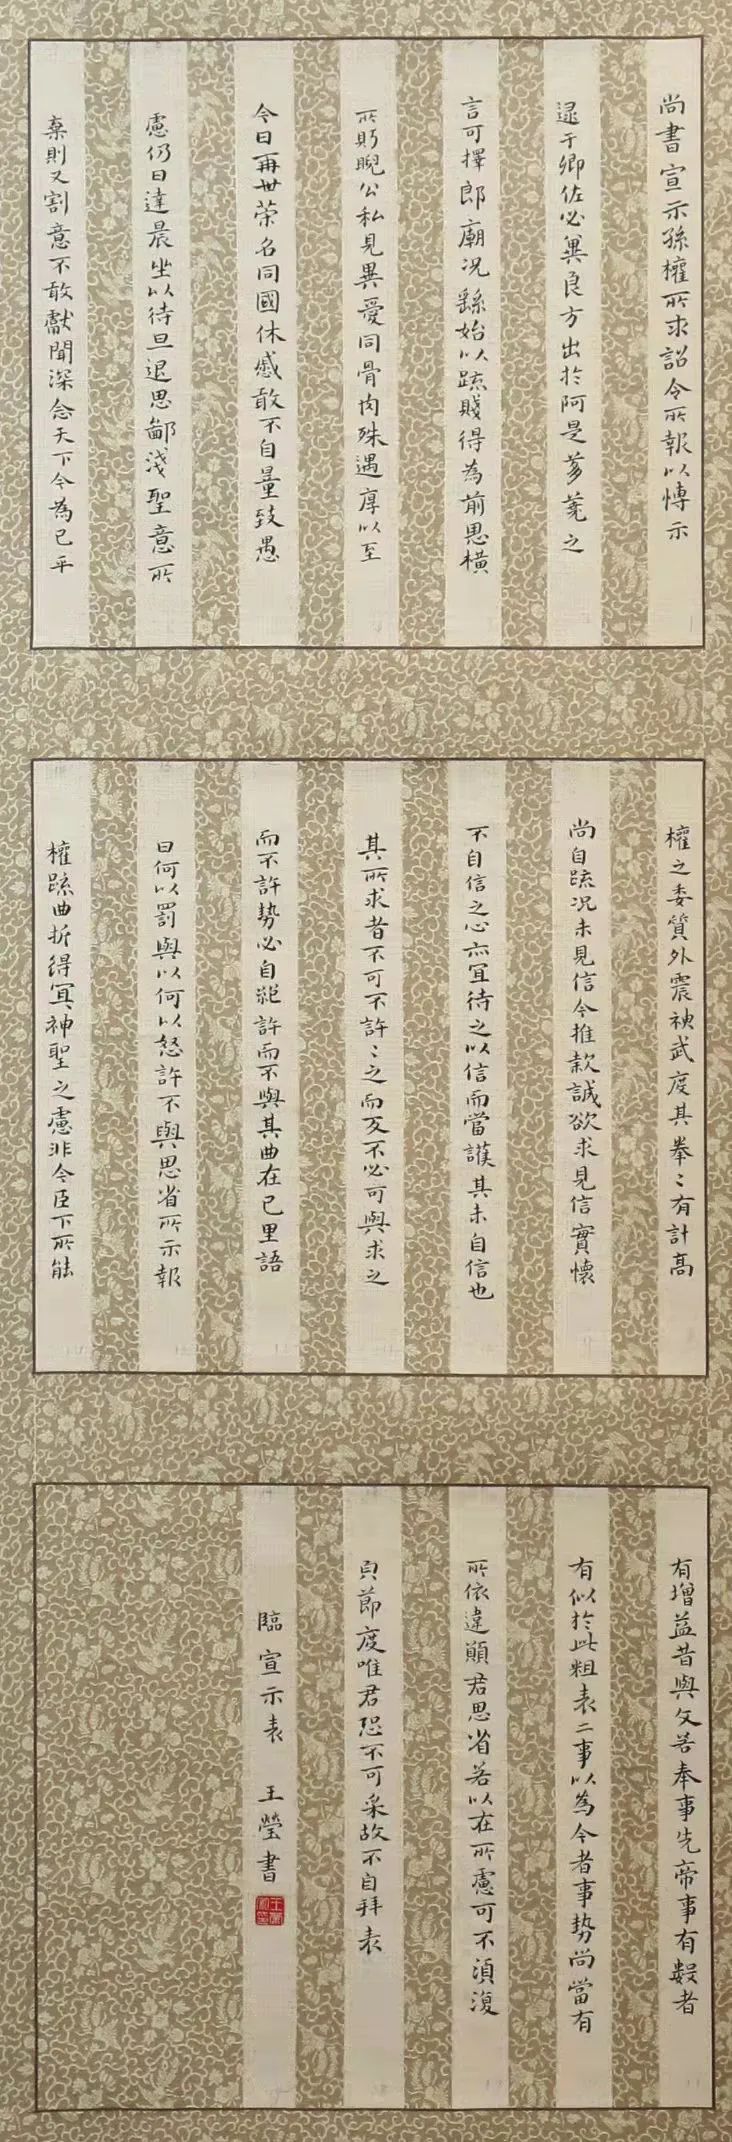 尚書宣示孫權所求詔令所報以愽示
逮于卿佐必兾良方出於阿是芻蕘之
言可擇郎廟況繇始以疏賤得為前恩橫
所䀢睨公私見異愛同骨肉殊遇厚以至
今日再世榮名同國休慼敢不自量致愚
慮仍日達晨坐以待旦退思鄙淺聖意所
棄則又割意不敢獻聞深念天下今為已平
權之委質外震神武度其拳〻有計高
尚自疏況未見信今推款誠欲求見信實懷
不自信之心亦宜待之以信而當護其未自信也
其所求者不可不許〻之而反不必可與求之
而不許勢必自絕許而不與其曲在己里語
曰何以罰與以何以怒許不與思省所示報
權疏曲折得宜神聖之慮非今臣下所能
有增益昔與文若奉事先帝事有數者
有似於此粗表二事以為今者事勢尚當有
所依違願君思省若以在所慮可不須復
貝節度唯君恐不可采故不自拜表
臨宣示表 王瑩書